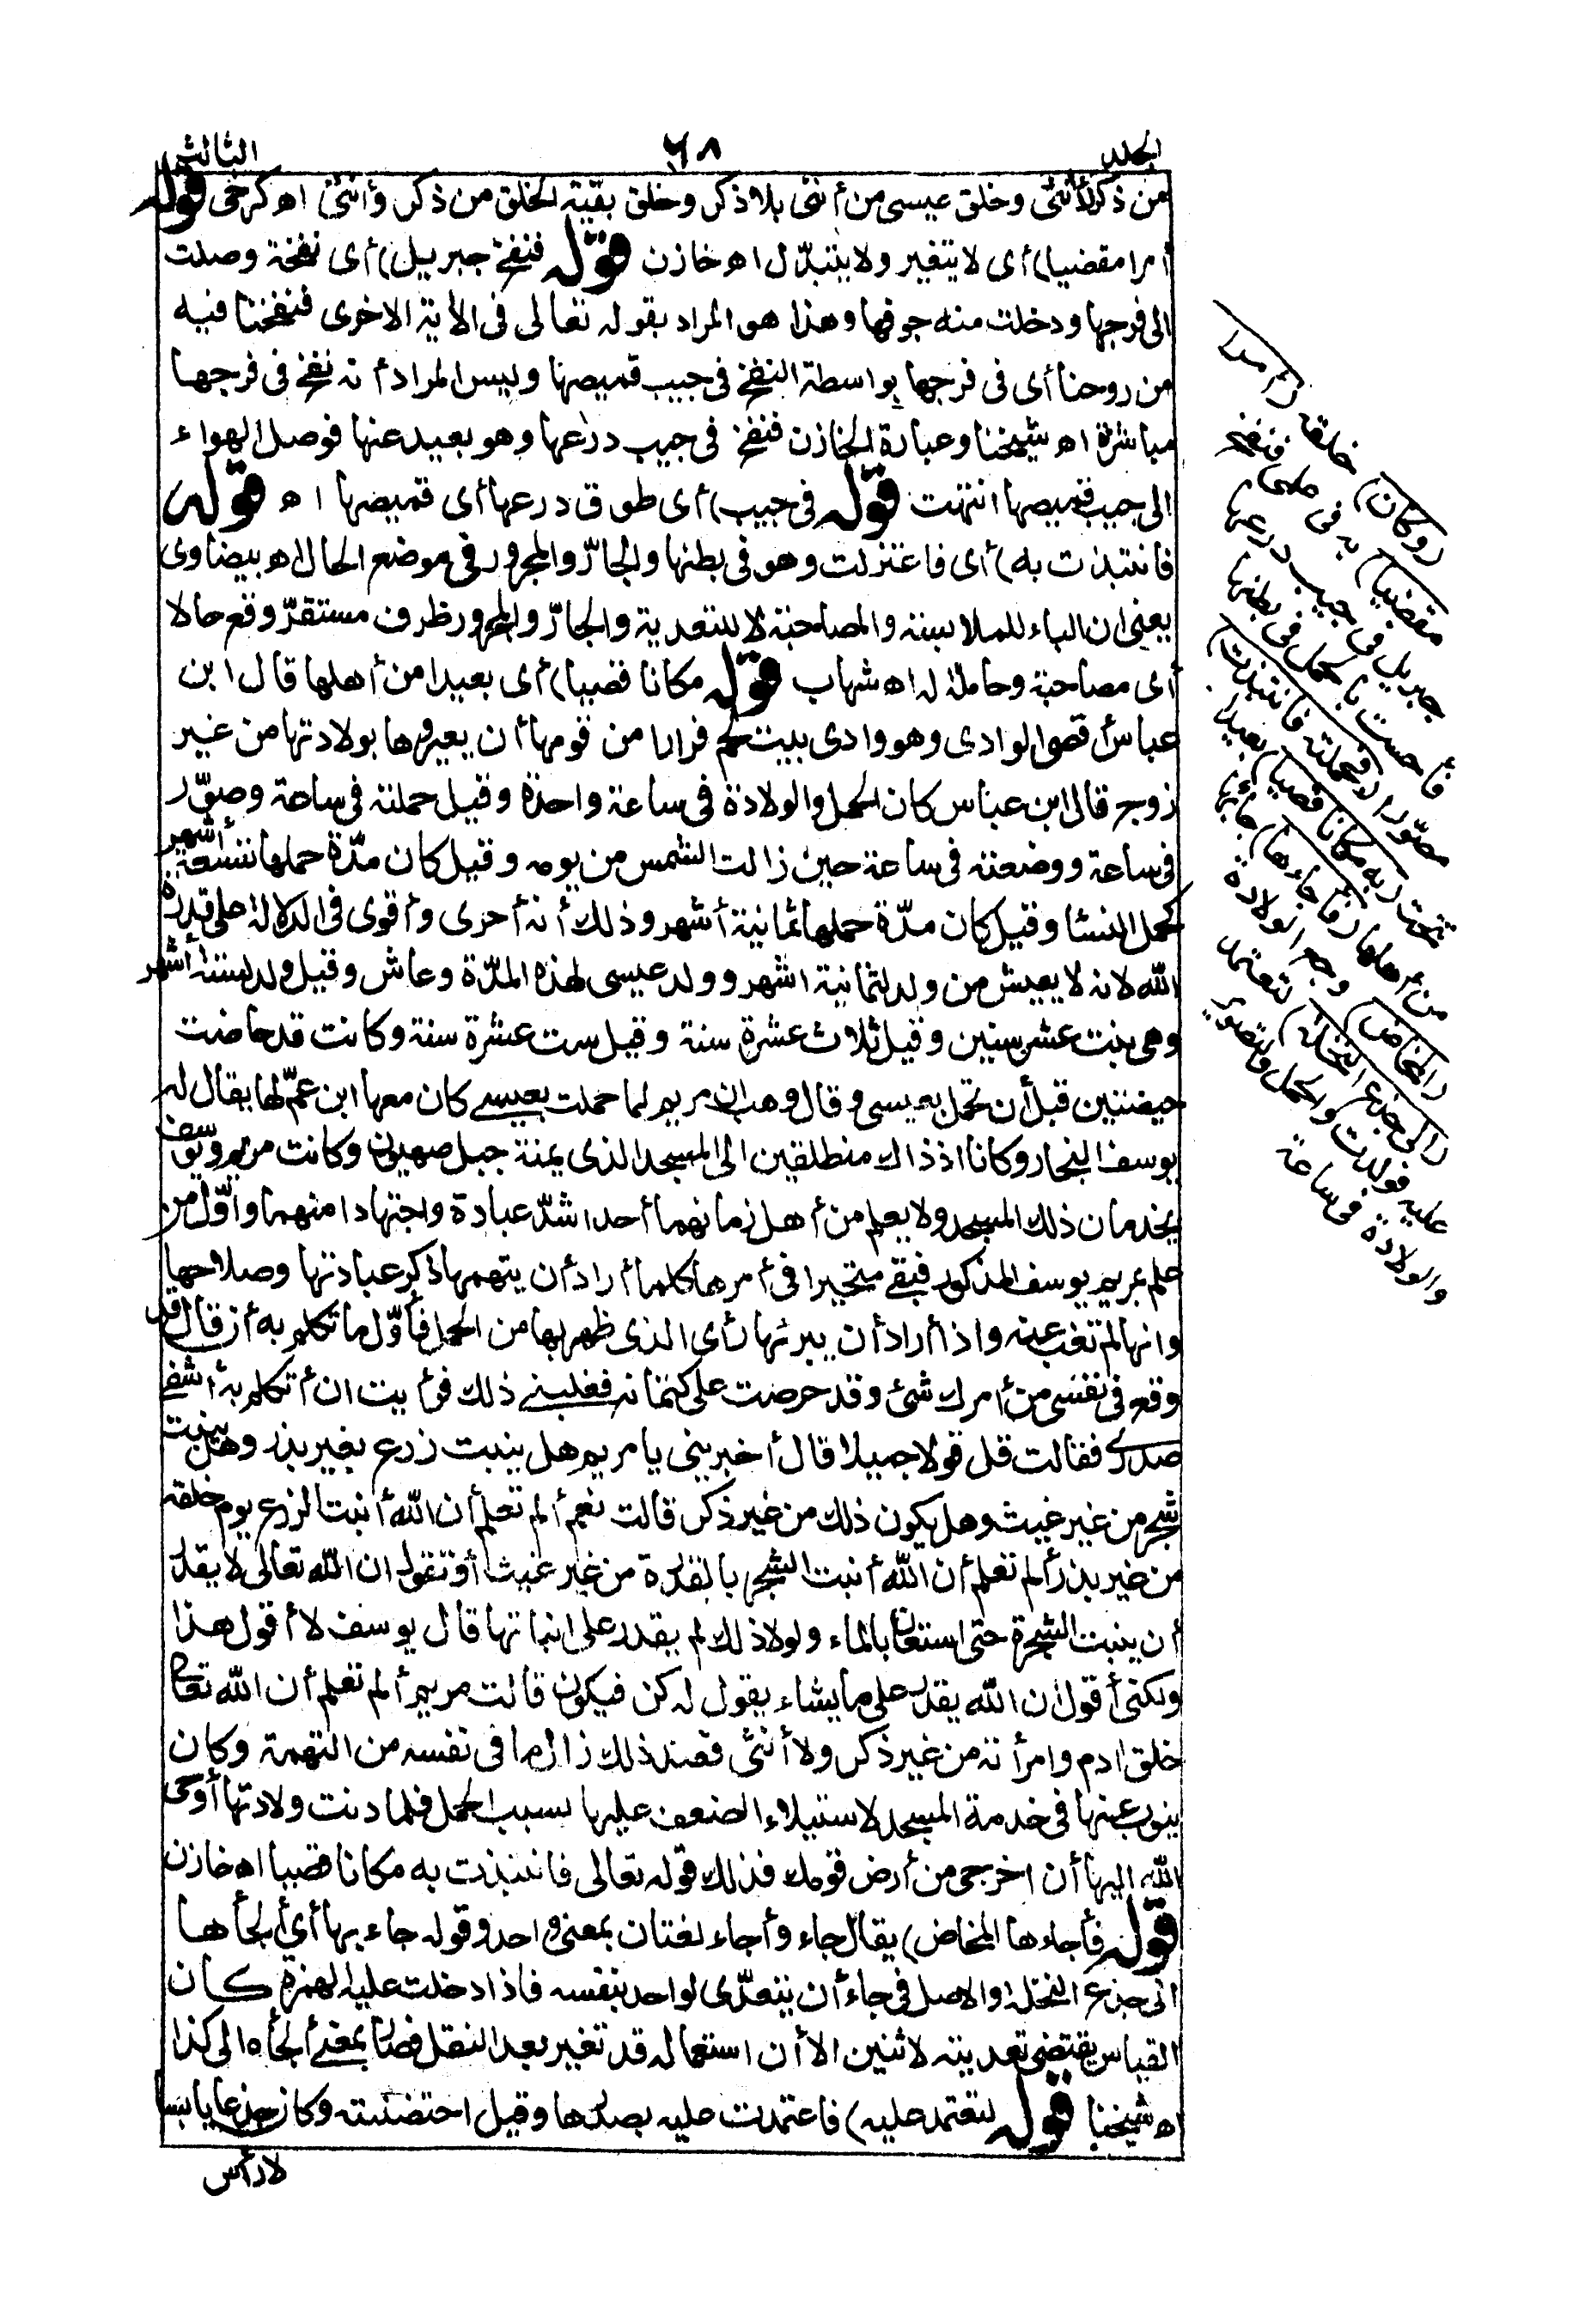 الجلد
٦٨
الثالث
من ذكر لا أنثى وخلق عيسى من أنثى بلا ذكر وخلق بقية الخلق من ذكر وأنثى اه كرخى قوله
أمرا مقضيا) أى لا يتغير ولا يتبدّل اه خازن قوله فنفخ جبريل) أى نفخة وصلت
الى فرجها ودخلت منه جوفها وهذا هو المراد بقوله تعالى فى الآية الاخرى فنفخنا فيه
من روحنا أى فى فرجها بواسطة النفخ فى جيب قميصها وليس المراد أنه نفخ فى فرجها
مباشرة اه شيخنا وعبارة الخازن فنفخ فى جيب درعها وهو بعيد عنها فوصل الهواء
الى جيب قميصها انتهت قوله فى جيب) أى طوق درعها أى قميصها اه قوله
فانتبذت به) أى فاعتزلت وهو فى بطنها والجارّ والمجرور فى موضع الحال اه بيضاوى
يعنى ان الباء للملابسة والمصاحبة لا للتعدية والجارّ والمجرور ظرف مستقرّ وقع حالا
أى مصاحبة وحاملة له اه شهاب قوله مكانا قصيا) أى بعيدا من أهلها قال ابن
عباس أقصى الوادى وهو وادى بيت لحم فرارا من قومها أن يعيروها بولادتها من غير
زوج قال ابن عباس كان الحمل والولادة فى ساعة واحدة وقيل حملته فى ساعة وصوّر
فى ساعة ووضعته فى ساعة حين زالت الشمس من يومه وقيل كان مدّة حملها تسعة أشهر
كحمل النسا وقيل كان مدّة حملها ثمانية أشهر وذلك أنه أحرى وأقوى فى الدلالة على قدرة
الله لانه لا يعيش من ولد لثمانية اشهر وولد عيسى لهذه المدّة وعاش وقيل ولد لستة أشهر
وهى بنت عشر سنين وقيل ثلاث عشرة سنة وقيل ست عشرة سنة وكانت قد حاضت
حيضتين قبل أن تحمل بعيسى وقال وهب ان مريم لما حملت بعيسى كان معها ابن عمّ لها يقال له
يوسف النجار وكانا اذ ذاك منطلقين الى المسجد الذى يمنة جبل صهيون وكانت مريم ويوسف
يخدمان ذلك المسجد ولا يعلم من أهل زمانهما أحد اشدّ عبادة واجتهادا منهما وأوّل من
علم بمريم يوسف المذكور فبقى متحيرا فى أمرها كلما أراد أن يتهمها ذكر عبادتها وصلاحها
وانها لم تغب عنه واذا أراد أن يبرئها رأى الذى ظهر بها من الحمل فأوّل ما تكلم به أن قال قد
وقع فى نفسى من أمرك شئ وقد حرصت على كتمانه فغلبنى ذلك فرأيت ان أتكلم به أشفى
صدرى فقالت قل قولا جميلا قال أخبرينى يا مريم هل ينبت زرع بغير بذر وهل ينبت
شجر من غير غيث وهل يكون ذلك من غير ذكر قالت نعم ألم تعلم أن الله أنبت الزرع يوم خلقه
من غير بذر ألم تعلم أن الله أنبت الشجر بالقدرة من غير غيث أو تقول ان الله تعالى لا يقدر
أن ينبت الشجرة حتى استعان بالماء ولولا ذلك لم يقدر على انباتها قال يوسف لا أقول هذا
ولكنى أقول ان الله يقدر على ما يشاء يقول له كن فيكون قالت مريم ألم تعلم أن الله تعالى
خلق ادم وامرأته من غير ذكر ولا أنثى فعند ذلك زال ما فى نفسه من التهمة وكان
ينوب عنها فى خدمة المسجد لاستيلاء الضعف عليها بسبب الحمل فلما دنت ولادتها أوحى
الله اليها أن اخرجى من أرض قومك فذلك قوله تعالى فانتبذت به مكانا قصيا اه خازن
قوله فأجاءها المخاض) يقال جاء وأجاء لغتان بمعنى واحد وقوله جاء بها أى ألجأها
الى جذع النخلة والاصل فى جاء أن يتعدّى لواحد بنفسه فاذا دخلت عليه الهمزة كان
القياس يقتضى تعديته لاثنين الا أن استعماله قد تغير بعد النقل فصار بمعنى ألجأه الى كذا
اه شيخنا قوله لتعتمد عليه) فاعتمدت عليه بصدرها وقيل احتضنته وكان جذعا يابسا
لا رأس
(وكان) خلقه (أمرا
مقضيا) به فى علمى فنفخ
جبريل فى جيب درعها
فأحست بالحمل فى بطنها
مصوّرا (فحملته فانتبذت)
تنحت (به مكانا قصيا) بعيدا
من أهلها (فأجاءها) جاء بها
(المخاض) وجع الولادة
(الى جذع النخلة) لتعتمد
عليه فولدت والحمل والتصوير
والولادة فى ساعة